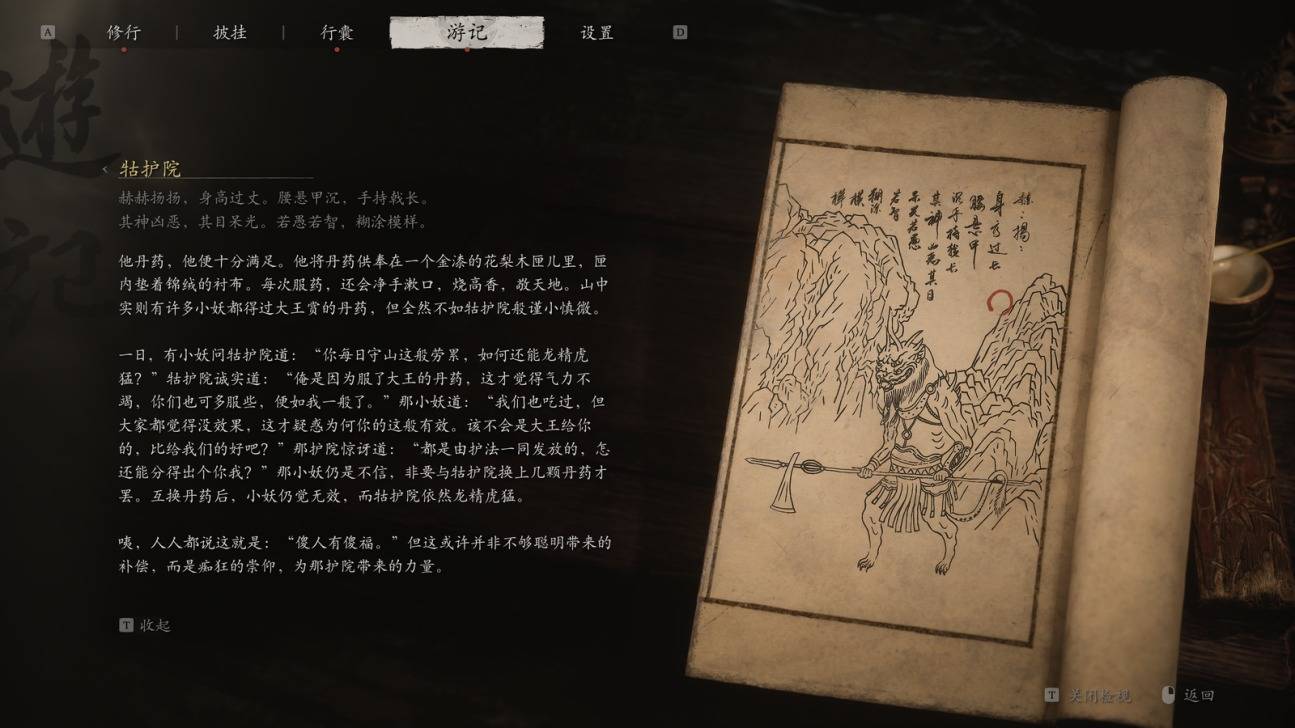 A
修行
披挂
行囊
游记
设置
D
遊
記
牯护院
赫赫扬扬，身高过丈。腰悬甲沉，手持戟长。
其神凶恶，其目呆光。若愚若智，糊涂模样。
他丹药，他便十分满足。他将丹药供奉在一个金漆的花梨木匣儿里，匣
内垫着锦绒的衬布。每次服药，还会净手漱口，烧高香，敬天地。山中
实则有许多小妖都得过大王赏的丹药，但全然不如牯护院般谨小慎微。
一日，有小妖问牯护院道：“你每日守山这般劳累，如何还能龙精虎
猛？”牯护院诚实道：“俺是因为服了大王的丹药，这才觉得气力不
竭，你们也可多服些，便如我一般了。”那小妖道：“我们也吃过，但
大家都觉得没效果，这才疑惑为何你的这般有效。该不会是大王给你
的，比给我们的好吧？”那护院惊讶道：“都是由护法一同发放的，怎
还能分得出个你我？”那小妖仍是不信，非要与牯护院换上几颗丹药才
罢。互换丹药后，小妖仍觉无效，而牯护院依然龙精虎猛。
咦，人人都说这就是：“傻人有傻福。”但这或许并非不够聪明带来的
补偿，而是痴狂的崇仰，为那护院带来的力量。
T 收起
赫〻揚〻
身高过丈
腰悬甲
沉手持戟长
其神凶恶其目
呆光若愚
若智
糊涂
模
样
T 关闭检视
返回